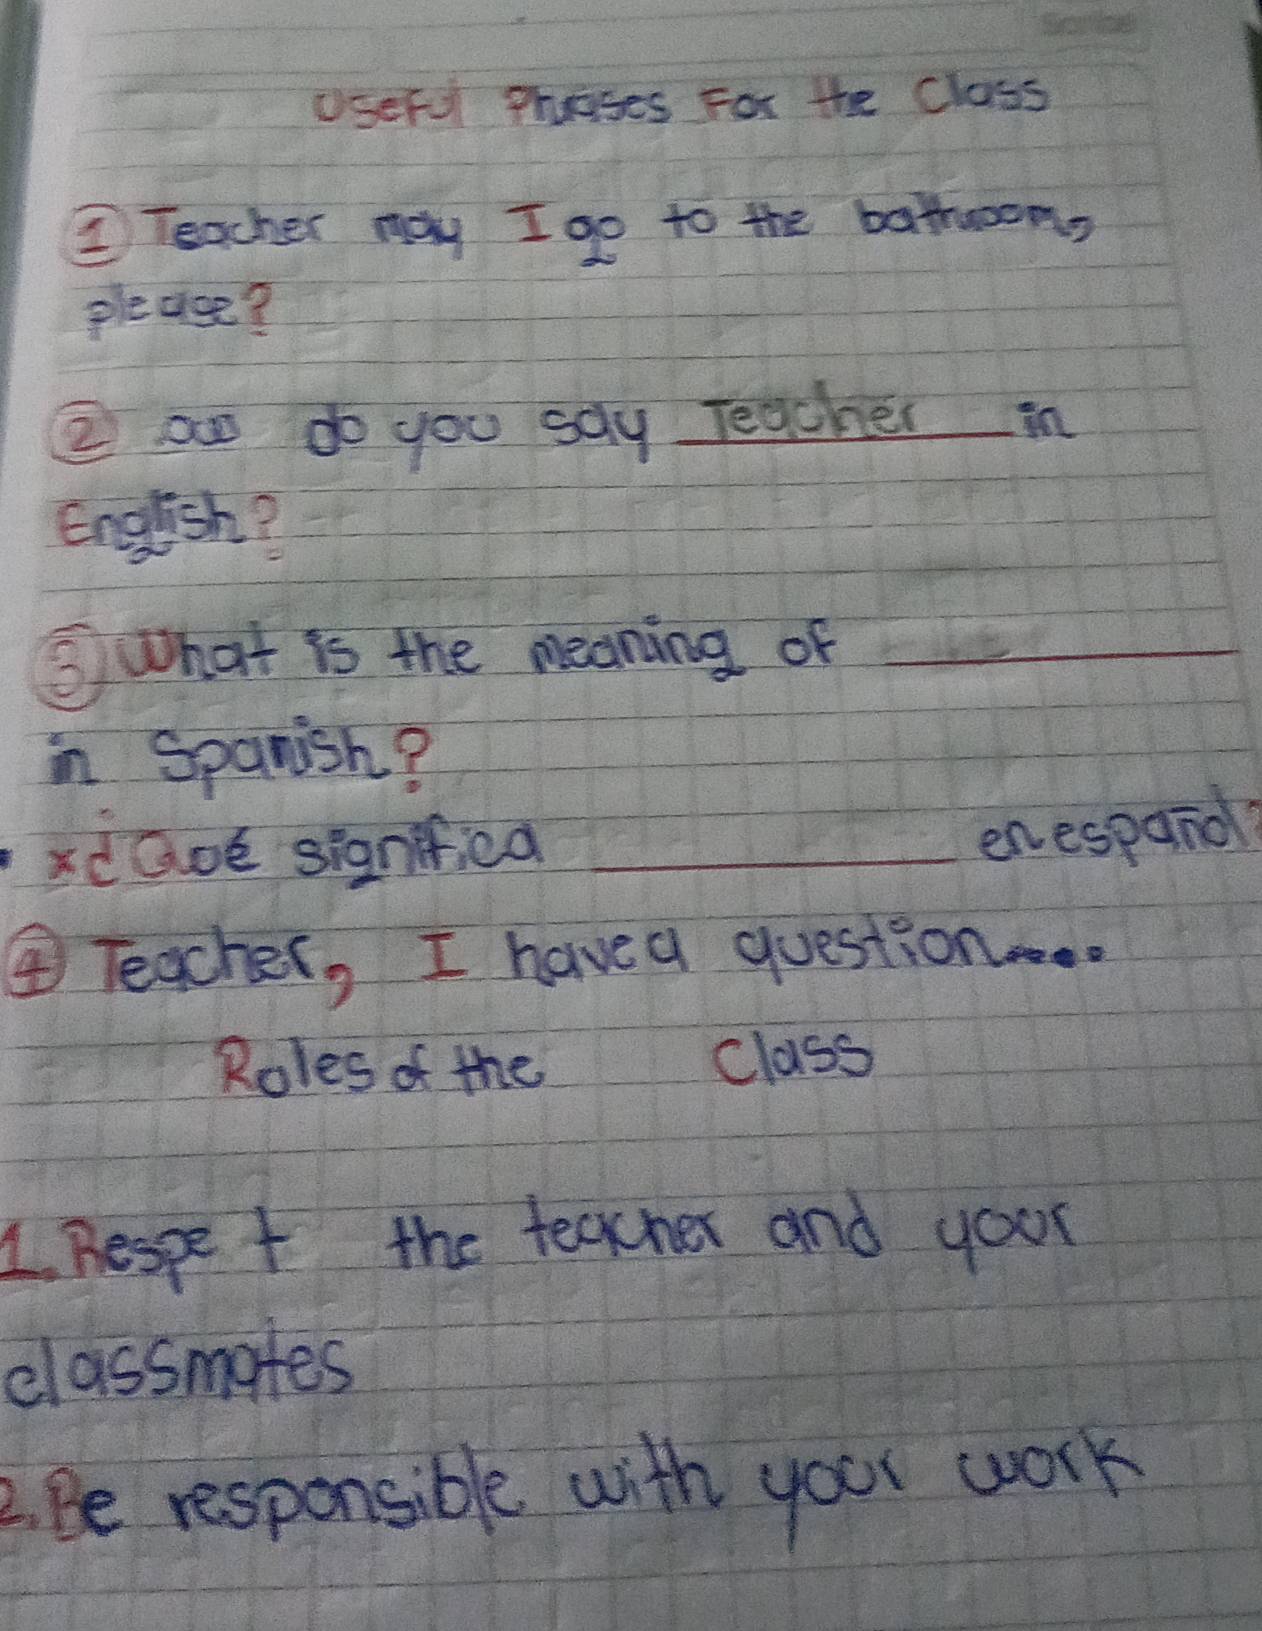 Useful Phrases For the Class
① Teacher may I go to the bathroom,
please?
② ow do you say Teacher in
English?
③ What is the meaning of ________
in Spanish?
x ¿Qué significa ________ en español?
④ Teacher, I have a question....
Roles of the Class
1. Respe t the teacher and your
classmates
2. Be responsible with your work